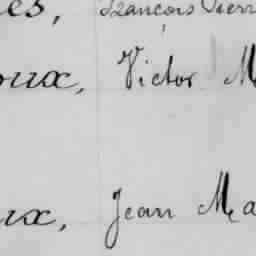 es, François Pierr
oux, Victor M
ux, Jean Ma